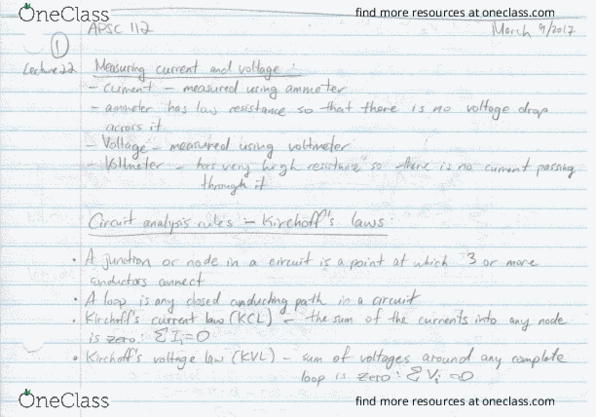 OneClass
find more resources at oneclass.com
APSC 112
March 9/2017
1
Lecture 22
Measuring current and voltage:
- current - measured using ammeter
- ammeter has low resistance so that there is no voltage drop
across it
- Voltage - measured using voltmeter
- Voltmeter - has very high resistance so there is no current passing
through it
Circuit analysis rules - Kirchoff's laws:
• A junction or node in a circuit is a point at which 3 or more
conductors connect
• A loop is any closed conducting path in a circuit
• Kirchoff's current law (KCL) - the sum of the currents into any node
is zero: ΣIi=0
• Kirchoff's voltage law (KVL) - sum of voltages around any complete
loop is zero: ΣVi=0
OneClass
find more resources at oneclass.com